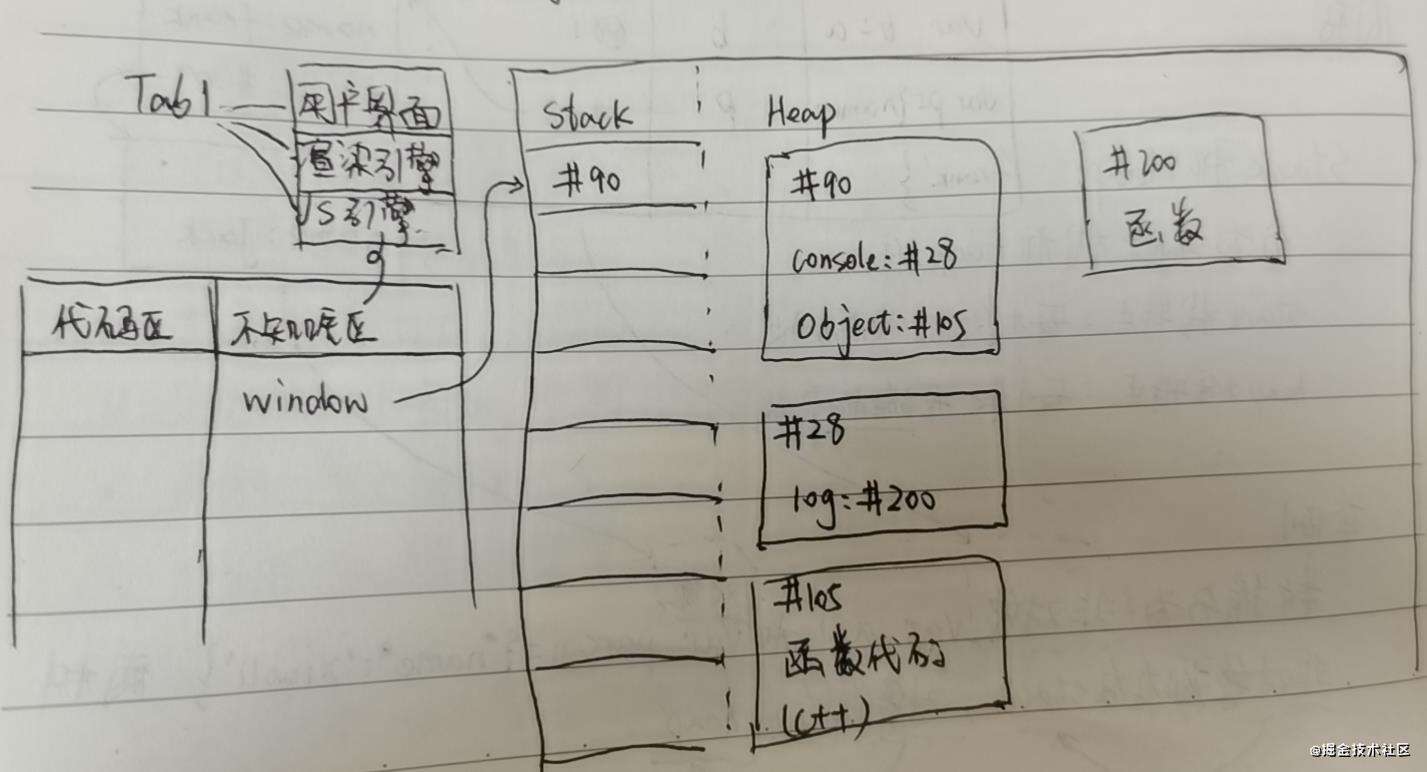 Tab1
用户界面
渲染引擎
JS引擎
代码区
不知啥区
window
Stack
#90
Heap
#90
console:#28
Object:#105
#28
log:#200
#105
函数代码
(C++)
#200
函数
@掘金技术社区